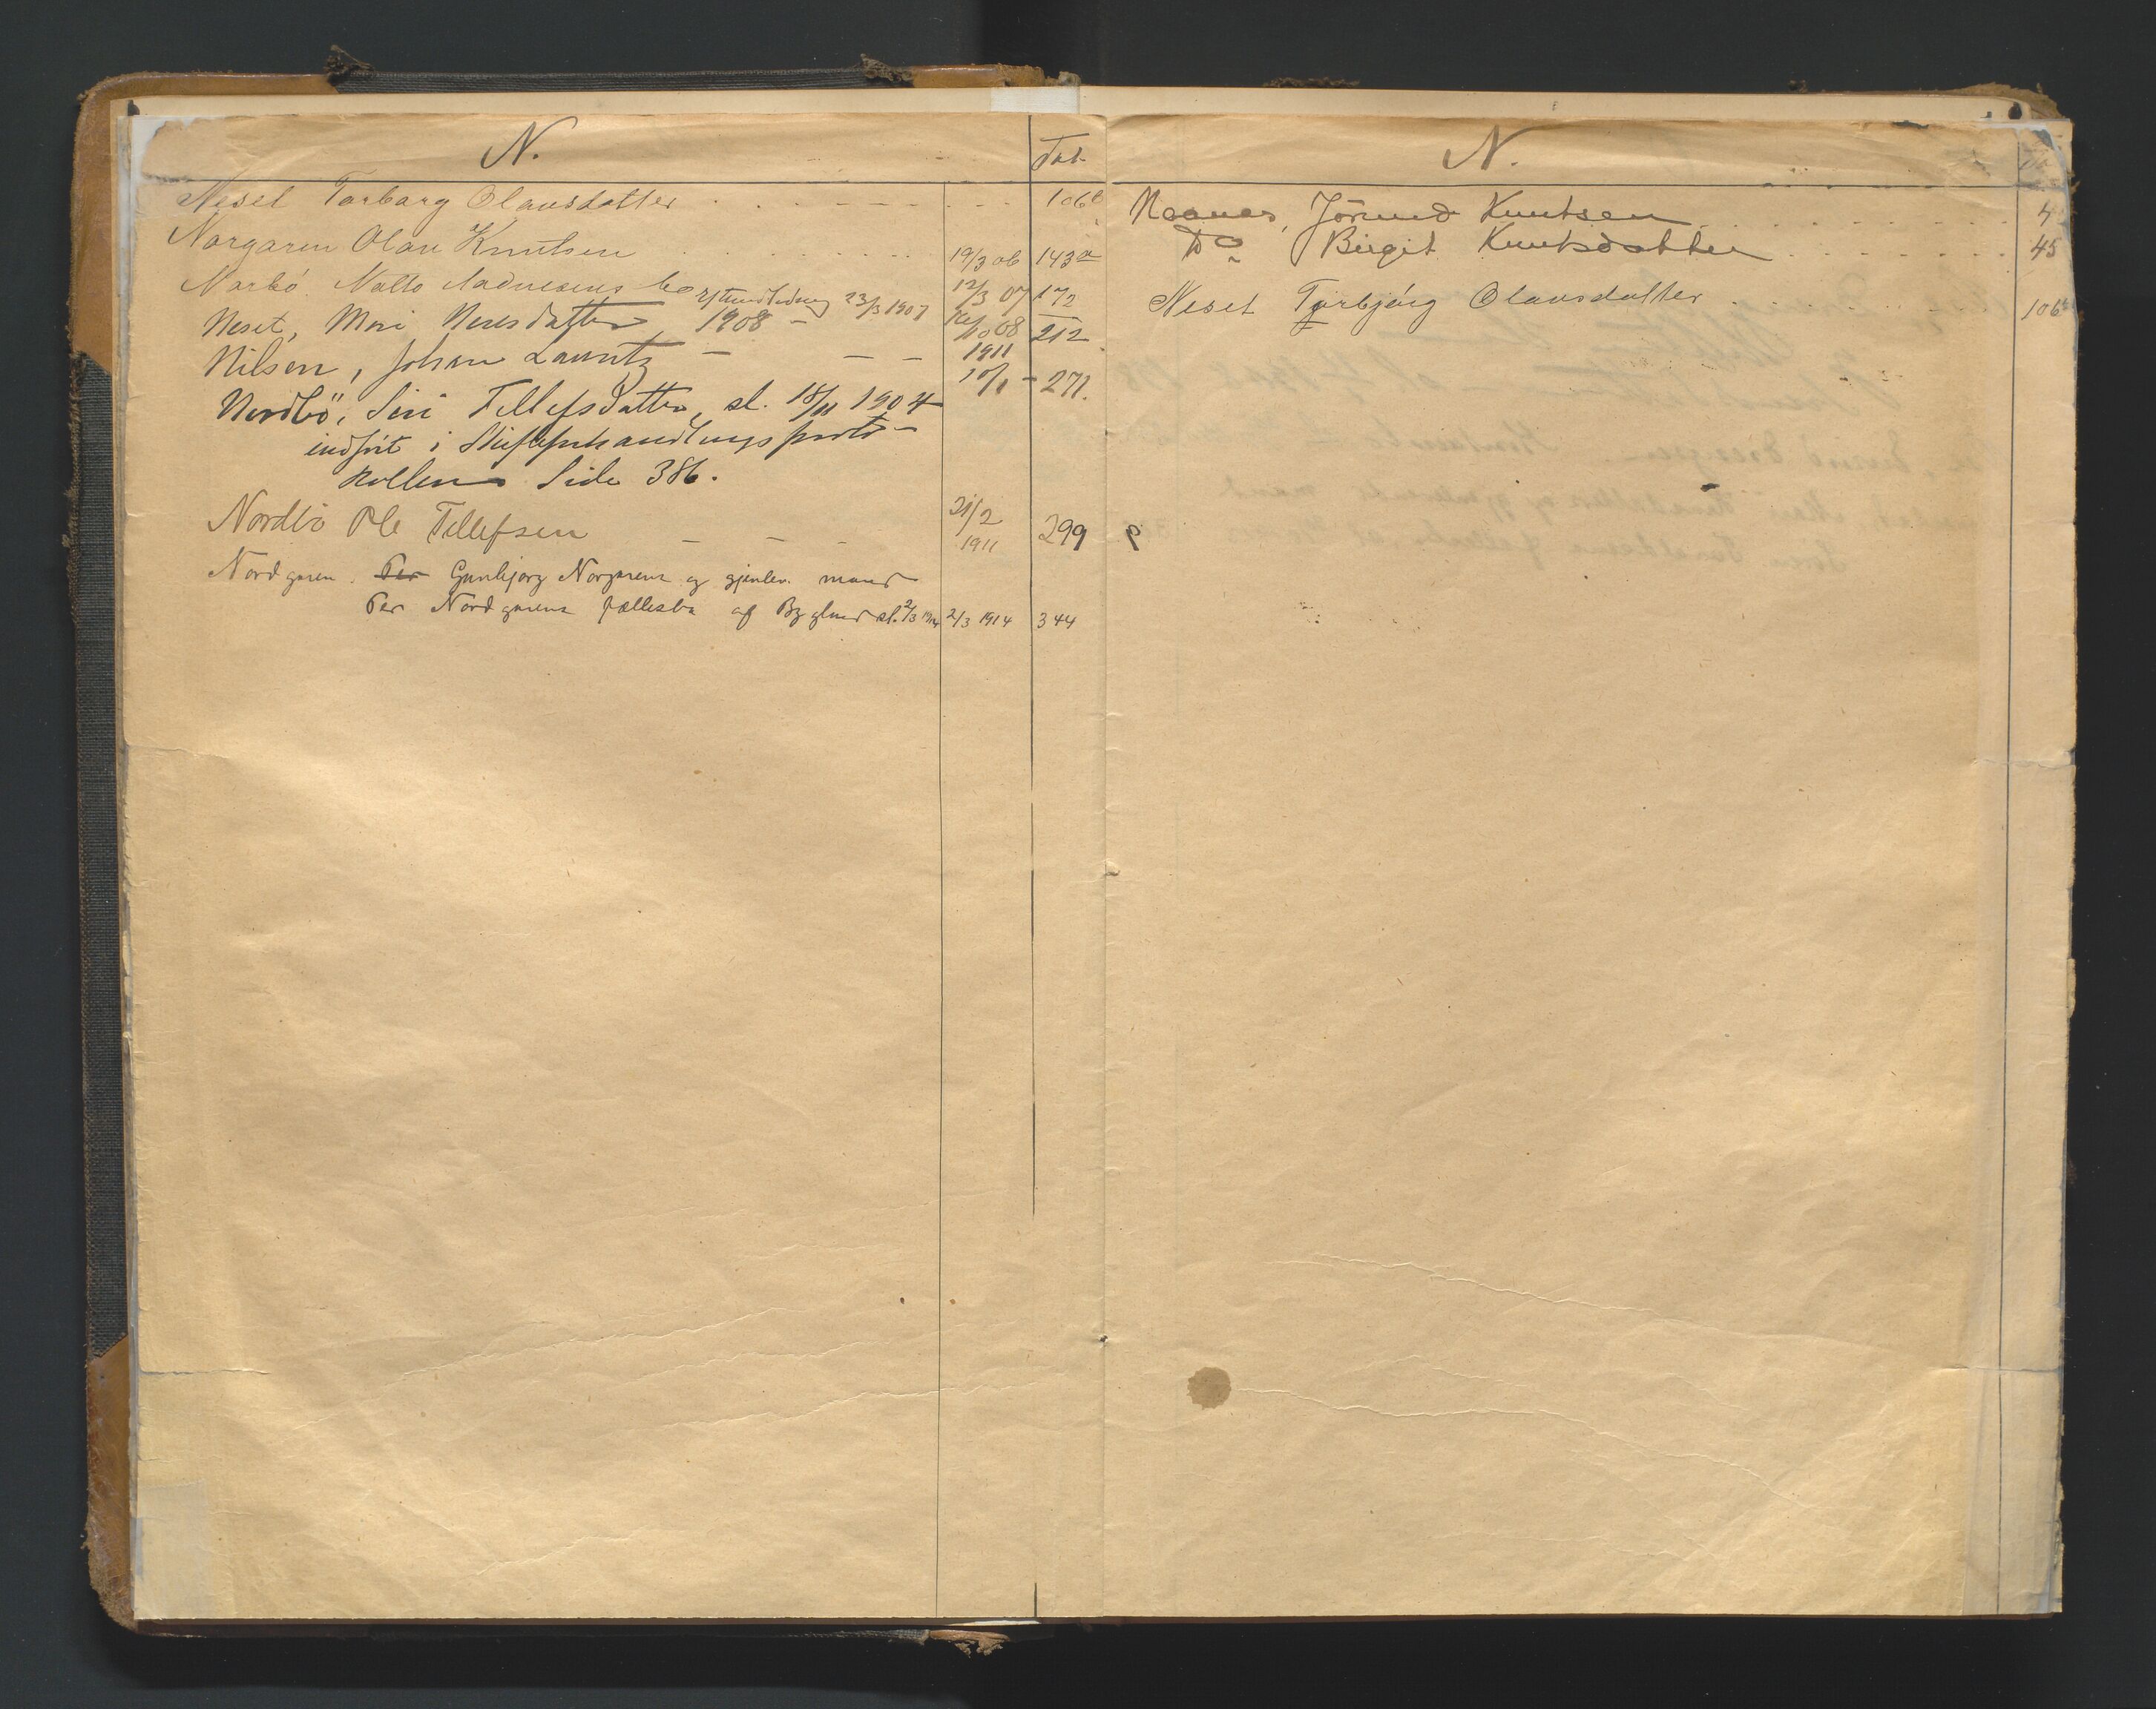 N.
Fol.
Neset Torbarg Olausdatter 106b
Norgaren Olav Knutsen 19/3 06 143a
Narbö. bo 23/3 1907 12/3 07 172
Neset, Mari 1908 — 10 08 212
Nilsen, Johan Lauritz — — — 1911 10/1 — 271.
Nordbö, Siri Tellefsdatter, sl. 18/11 1904
indfört i Skifteforhandlingsproto-
kollen Side 386.
Nordbö Ole Tellefsen — — — 21/2 1911 299
Nordgaren. Per Gunbjorg Norgaren og gjenlev. mand
Per Nordgarens fællesbo af Bygland sl. 2/3 1914 2/3 1914 344
N.
Jörund Knutsen 4
Do Birgit Knutsdatter 45
Neset Torbjörg Olausdatter 106b